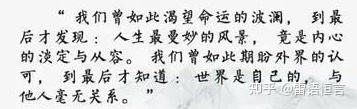 “ 我们曾如此渴望命运的波澜, 到最
后才发现: 人生最曼妙的风景, 竟是内心
的淡定与从容。 我们曾如此期盼外界的认
可, 到最后才知道: 世界是自己的, 与
他人毫无关系。”
知乎 @雷语恒言